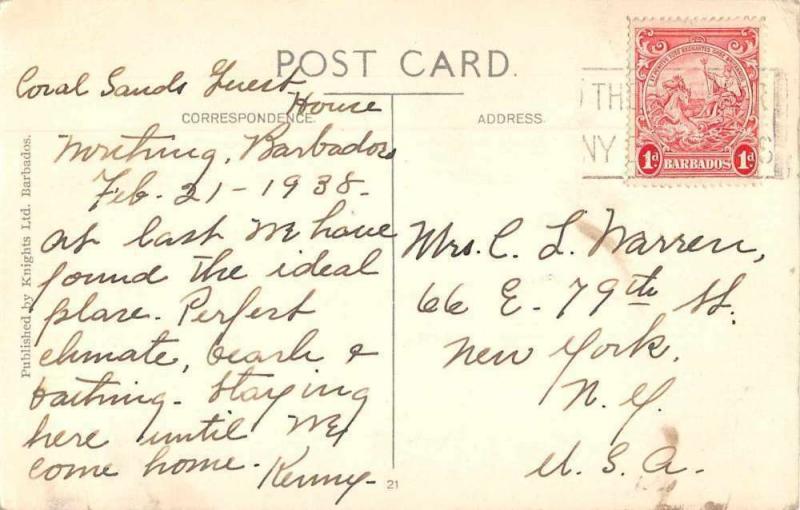 POST CARD.
Coral Sands Guest
House
CORRESPONDENCE.
Worthing, Barbados
Feb. 21-1938-
At last we have
found the ideal
place. Perfect
climate, beach &
bathing. Staying
here until we
come home. Kenny-
Published by Knights Ltd. Barbados.
21
ADDRESS.
THE
NY
S
1d BARBADOS 1d
Mrs. C. L. Warren,
66 E. 79th St.
New York.
N. Y.
U. S. A.